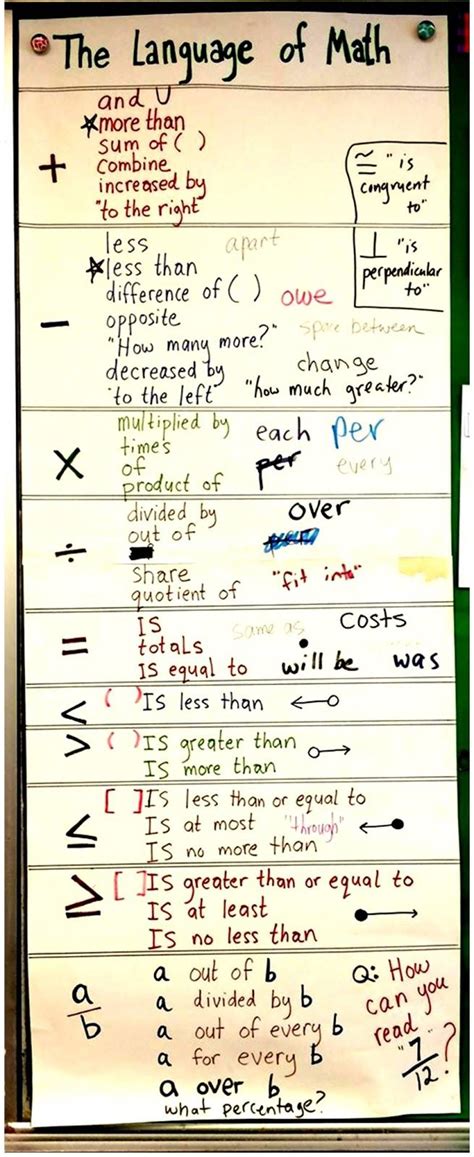 The Language of Math
+
and U
*more than
sum of ( )
combine
increased by
"to the right
≅ "is
congruent
to"
⊥ "is
perpendicular
to"
−
less apart
*less than
difference of ( ) owe
opposite
"How many more?" space between
decreased by change
"to the left "how much greater?"
×
multiplied by each per
times
of per every
product of
÷
divided by over
out of
share "fit into"
quotient of
=
IS same as costs
totals
IS equal to will be was
< ( ) IS less than
> ( ) IS greater than
IS more than
≤ [ ] IS less than or equal to
IS at most "through"
IS no more than
≥ [ ] IS greater than or equal to
IS at least
IS no less than
a/b
a out of b
a divided by b
a out of every b
a for every b
a over b
what percentage?
Q: How
can you
read
"7/12"?